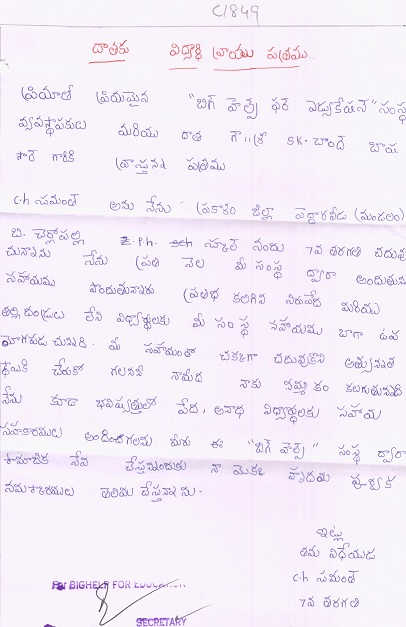 C1849
దాతకు విద్యార్థి వ్రాయు పత్రము
ప్రియాతి ప్రియమైన "బిగ్ హెల్ప్ ఫర్ ఎడ్యుకేషన్" సంస్థ
వ్యవస్థాపకులు మరియు దాత గౌ||శ్రీ SK. చాంద్ బాషా
సార్ గారికి వ్రాస్తున్న పత్రము
Ch సుమంత్ అను నేను ప్రకాశం జిల్లా పెద్దారవీడు (మండలం)
బి. చెర్లోపల్లి Z.P.h. sch స్కూల్ నందు 7వ తరగతి చదువు
చున్నాను నేను ప్రతి నెల మీ సంస్థ ద్వారా అందుతున్న
సహాయము పొందుతున్నాను ప్రతిభ కలిగిన నిరుపేద మరియు
తల్లిదండ్రులు లేని విద్యార్థులకు మీ సంస్థ సహాయము బాగా ఉప
యోగపడుచున్నది. మీ సహాయంతో చక్కగా చదువుకొని అత్యున్నత
స్థాయికి చేరుకో గలనని నామీద నాకు నమ్మకం కలుగుతున్నది
నేను కూడా భవిష్యత్తులో పేద, అనాధ విద్యార్థులకు సహాయ
సహకారములు అందించగలను మరు ఈ "బిగ్ హెల్ప్" సంస్థ ద్వారా
సామాజిక సేవ చేస్తున్నందుకు నా యొక్క హృదయ పూర్వక
నమస్కారములు తెలియ చేస్తున్నాను.
ఇట్లు
తమ విధేయుడు
Ch సుమంత్
7వ తరగతి
For BIGHELP FOR EDUCATION
SECRETARY